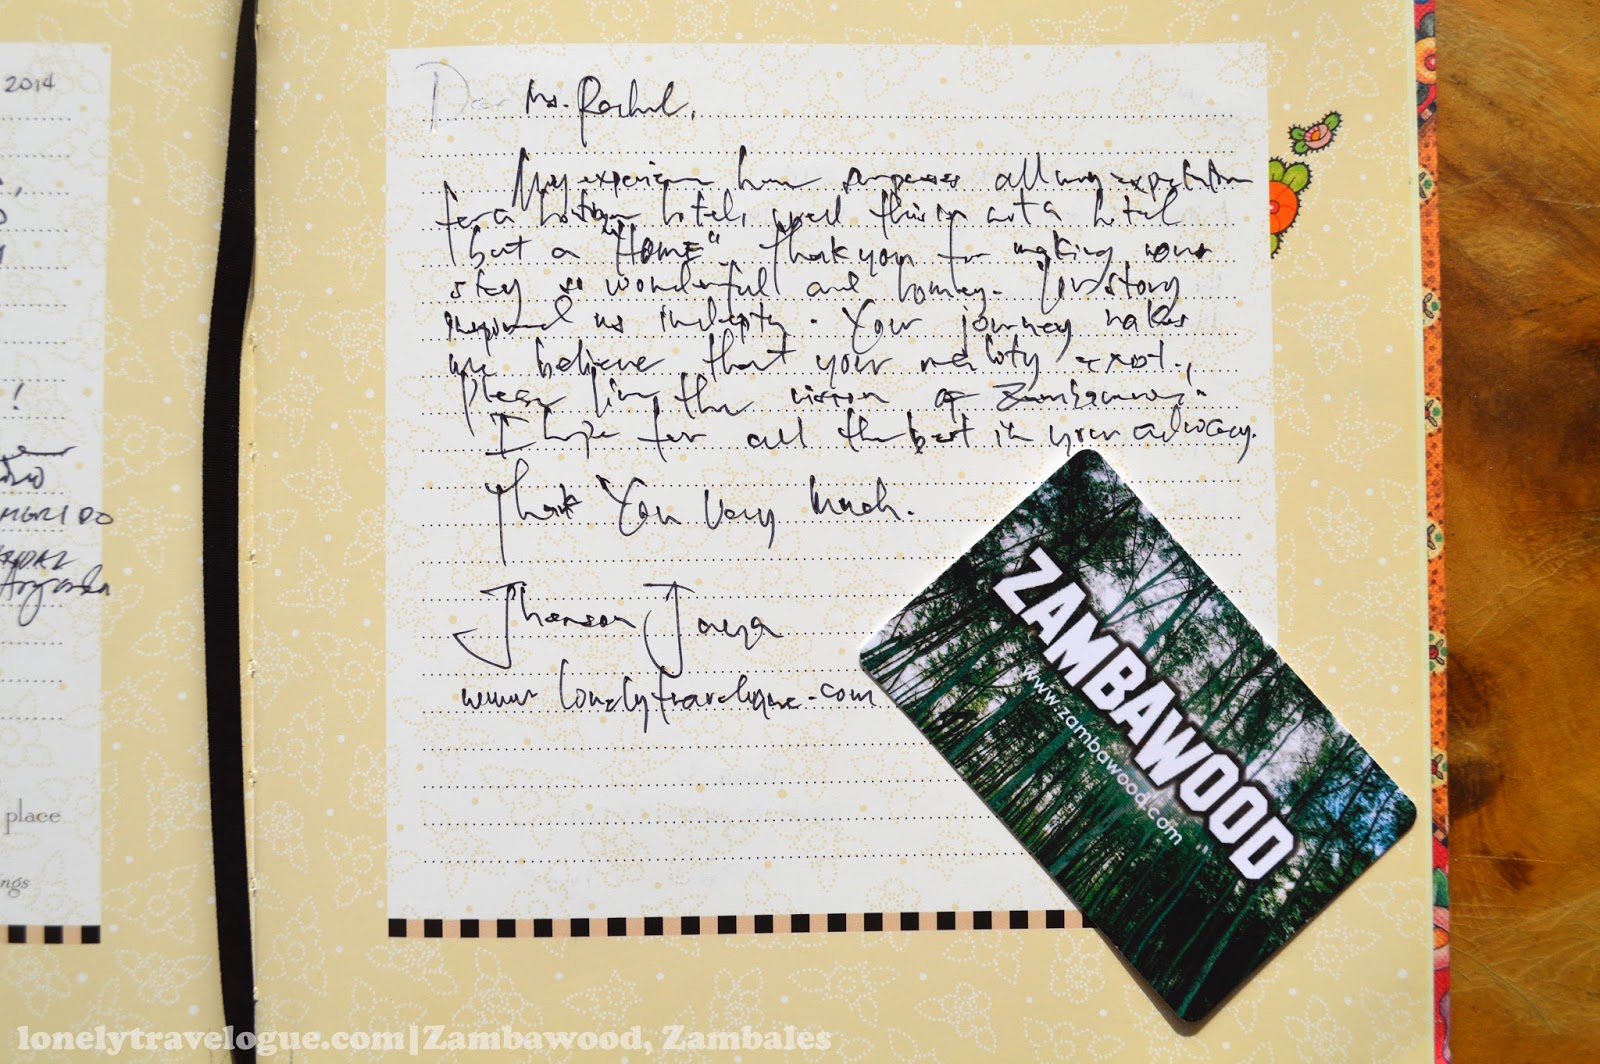 2014
!
MERIDO
place
ngs
Dear Ms. Rachel,
My experience here surpasses all my expectation
for a hotel, well this is not a hotel
but a "HOME". Thank you for making our
stay so wonderful and homey. Your story
inspired us. Your journey makes
me believe that your reality exist.,
Please live the vision of Zambawood.
I hope for all the best in your advocacy.
Thank You Very Much.
Jhanson Jaya
www lonelytravelogue.com
ZAMBAWOOD
www.zambawood.com
lonelytravelogue.com|Zambawood, Zambales